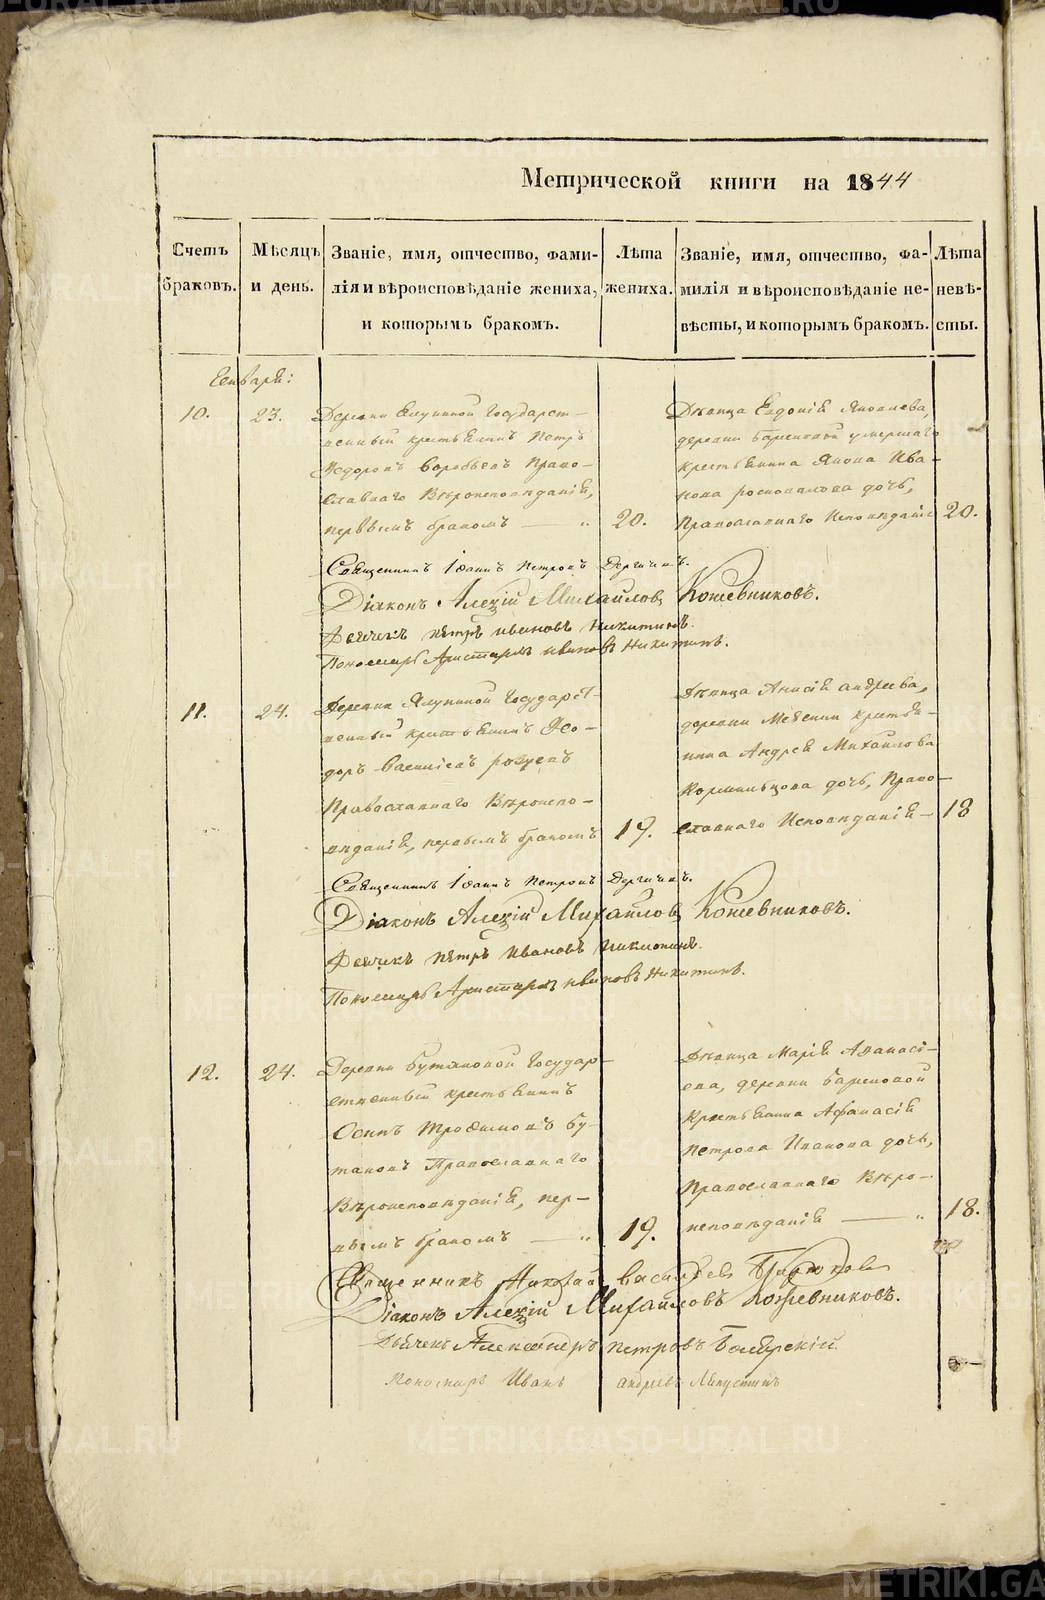 Метрической книги на 1844
Счетъ браковъ.
Мѣсяцъ и день.
Званіе, имя, отчество, фами-
лія и вѣроисповѣданіе жениха,
и которымъ бракомъ.
Лѣта
жениха.
Званіе, имя, отчество, фа-
милія и вѣроисповѣданіе не-
вѣсты, и которымъ бракомъ.
Лѣта
невѣ-
сты.
10. 23.
Деревни Государст-
венный крестьянинъ Петръ
Федоровъ Воробьевъ Право-
славнаго Вѣроисповѣданія,
первымъ бракомъ — „ 20.
Дѣвица Евдокія Яковлева,
деревни умершаго
крестьянина Якова Ива-
нова дочь,
Православнаго Исповѣданія 20.
Священникъ Іоаннъ Петровъ
Діаконъ Алексій Михайловъ Кожевниковъ.
Дьячекъ Петръ Ивановъ Никитинъ.
Пономарь Аристархъ Ивановъ Никитинъ.
11. 24.
Деревни Ялуниной Государст-
венный крестьянинъ Ѳео-
доръ Васильевъ
Православнаго Вѣроиспо-
вѣданія, первымъ бракомъ 19.
Дѣвица Анисія Андреева,
деревни крестья-
нина Андрея Михайлова
дочь, Право-
славнаго Исповѣданія — 18
Священникъ Іоаннъ Петровъ
Діаконъ Алексій Михайловъ Кожевниковъ.
Дьячекъ Петръ Ивановъ Никитинъ.
Пономарь Аристархъ Ивановъ Никитинъ.
12. 24.
Деревни Бутаковой Государ-
ственный крестьянинъ
Осипъ Трофимовъ Бу-
таковъ Православнаго
Вѣроисповѣданія, пер-
вымъ бракомъ — „ 19.
Дѣвица Марія Аѳанась-
ева, деревни
Крестьянина Афанасія
Петрова Иванова дочь,
Православнаго Вѣро-
исповѣданія — „ 18.
Священникъ Николай Васильевъ
Діаконъ Алексій Михайловъ Кожевниковъ.
Дьячекъ Александръ Петровъ
Пономарь Иванъ Андреевъ
METRIKI.GASO-URAL.RU